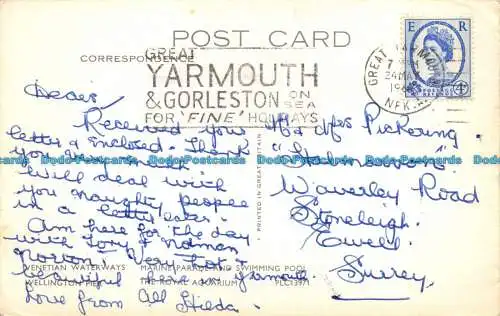 POST CARD
CORRESPONDENCE
GREAT
YARMOUTH
& GORLESTON ON SEA
FOR 'FINE' HOLIDAYS
GREAT YARMOUTH
24 MAY
NFK
E R
POSTAGE REVENUE
4D
Dears,
Received your
letter & enclosed. Thank
you very much
Will deal with
you naughty people
in a letter later.
Am here for the day
with Tory & Norman
Norton. Very hot &
beautiful here Yarmouth.
Love from All Hilda.
Mr & Mrs Pickering
Waverley Road
Stoneleigh
Ewell
Surrey.
PRINTED IN GREAT BRITAIN
VENETIAN WATERWAYS MARINE PARADE AND SWIMMING POOL
WELLINGTON PIER THE ROYAL AQUARIUM PLC13971
Dodo-Postcards Dodo-Postcards Dodo-Postcards Dodo-Postcards